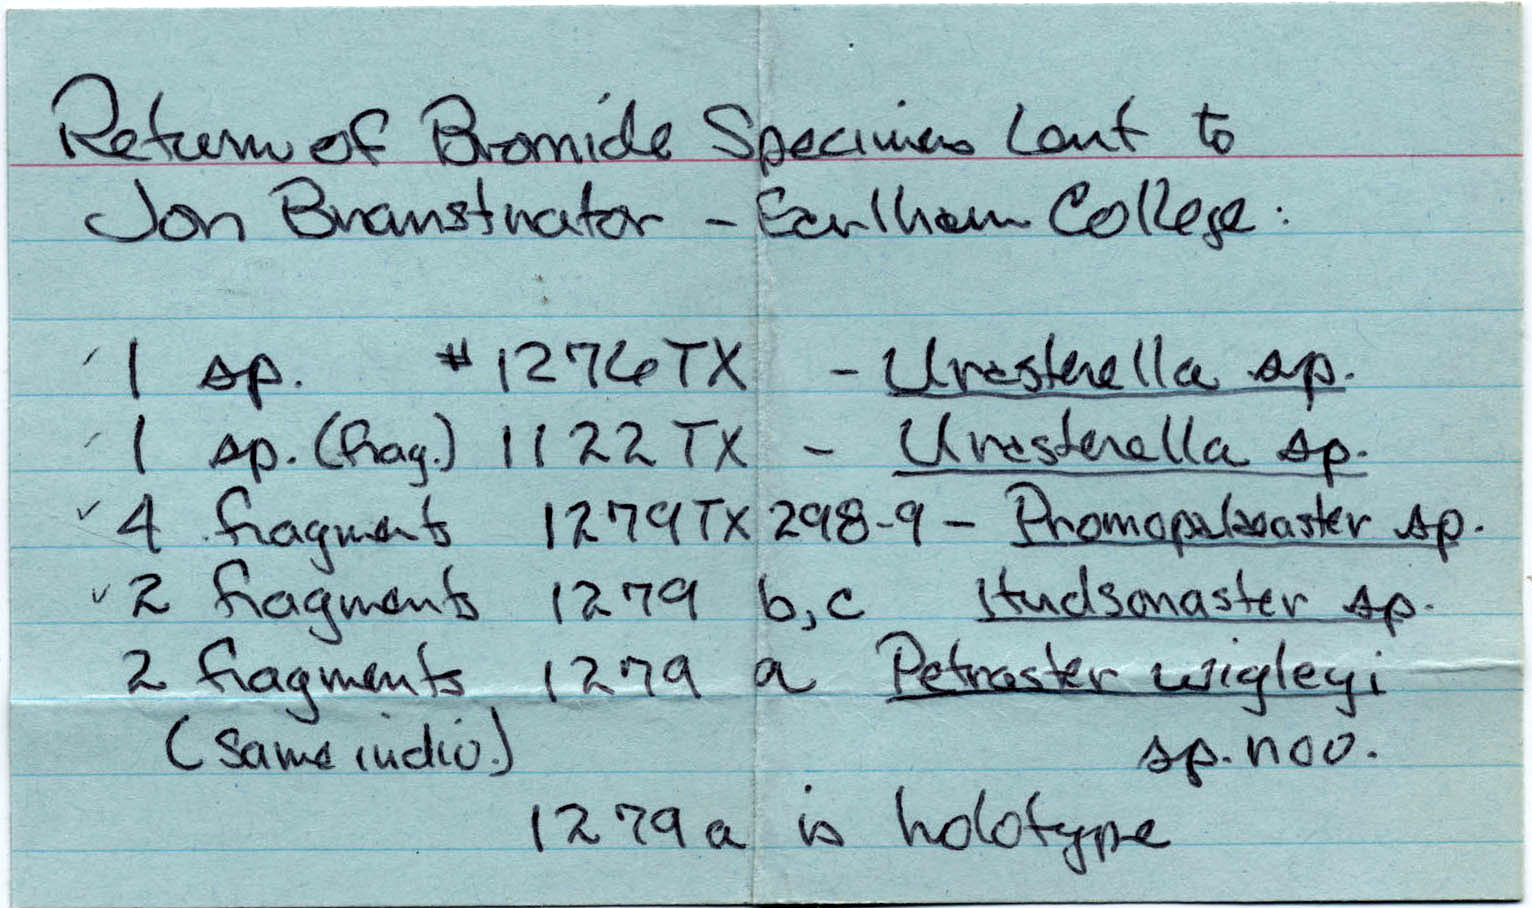 Return of Bromide Specimens lent to
Jon Branstrator - Earlham College:
✓ 1 sp. #1276TX - Urasterella sp.
✓ 1 sp. (frag.) 1122TX - Urasterella sp.
✓ 4 fragments 1279TX298-9 - Promopalaeaster sp.
✓ 2 fragments 1279 b,c Hudsonaster sp.
2 fragments 1279 a Petraster wigleyi
(same indiv.) sp. nov.
1279a is holotype